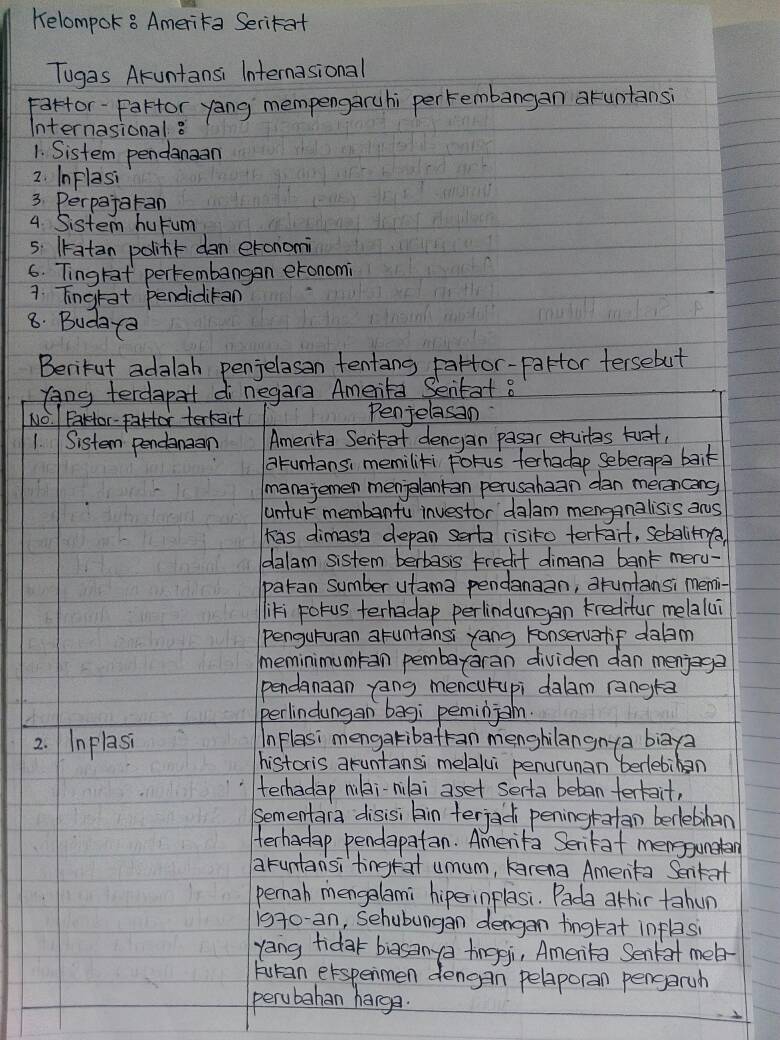 Kelompok : Amerika Serikat
Tugas Akuntansi Internasional
Faktor-Faktor yang mempengaruhi perkembangan akuntansi
Internasional :
1. Sistem pendanaan
2. Inflasi
3. Perpajakan
4. Sistem hukum
5. Ikatan politik dan ekonomi
6. Tingkat perkembangan ekonomi
7. Tingkat pendidikan
8. Budaya
Berikut adalah penjelasan tentang faktor-faktor tersebut
yang terdapat di negara Amerika Serikat :
No. Faktor-faktor terkait Penjelasan
1. Sistem pendanaan Amerika Serikat dengan pasar ekuitas kuat,
akuntansi memiliki fokus terhadap seberapa baik
manajemen menjalankan perusahaan dan merancang
untuk membantu investor dalam menganalisis arus
kas dimasa depan serta risiko terkait, sebaliknya,
dalam sistem berbasis kredit dimana bank meru-
pakan sumber utama pendanaan, akuntansi memi-
liki fokus terhadap perlindungan kreditur melalui
pengukuran akuntansi yang konservatif dalam
meminimumkan pembayaran dividen dan menjaga
pendanaan yang mencukupi dalam rangka
perlindungan bagi peminjam.
2. Inflasi Inflasi mengakibatkan menghilangnya biaya
historis akuntansi melalui penurunan berlebihan
terhadap nilai-nilai aset serta beban terkait,
sementara disisi lain terjadi peningkatan berlebihan
terhadap pendapatan. Amerika Serikat menggunakan
akuntansi tingkat umum, karena Amerika Serikat
pernah mengalami hiperinflasi. Pada akhir tahun
1970-an, Sehubungan dengan tingkat inflasi
yang tidak biasanya tinggi, Amerika Serikat mela-
kukan eksperimen dengan pelaporan pengaruh
perubahan harga.